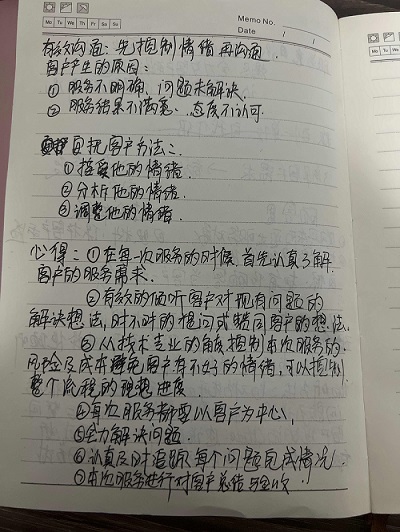 Memo No.
Mo Tu We Th Fr Sa Su
Date / /
有效沟通：先控制情绪再沟通.
客户产生的原因：
① 服务不明确、问题未解决.
② 服务结果不满意、态度不认可.
客户方法：
①接受他的情绪.
②分析他的情绪.
③调整他的情绪.
心得：①在每一次服务的时候,首先认真了解.
客户的服务需求.
②有效的倾听客户对现有问题的
解决想法,时不时的提问或赞同客户的想法.
③从技术专业的角度控制本次服务的.
风险及成本避免客户有不好的情绪,可以控制
整个流程的理想进度.
④每次服务都要以客户为中心,
⑤全力解决问题.
⑥认真及时追踪每个问题完成情况.
⑦本次服务进行对客户总结与